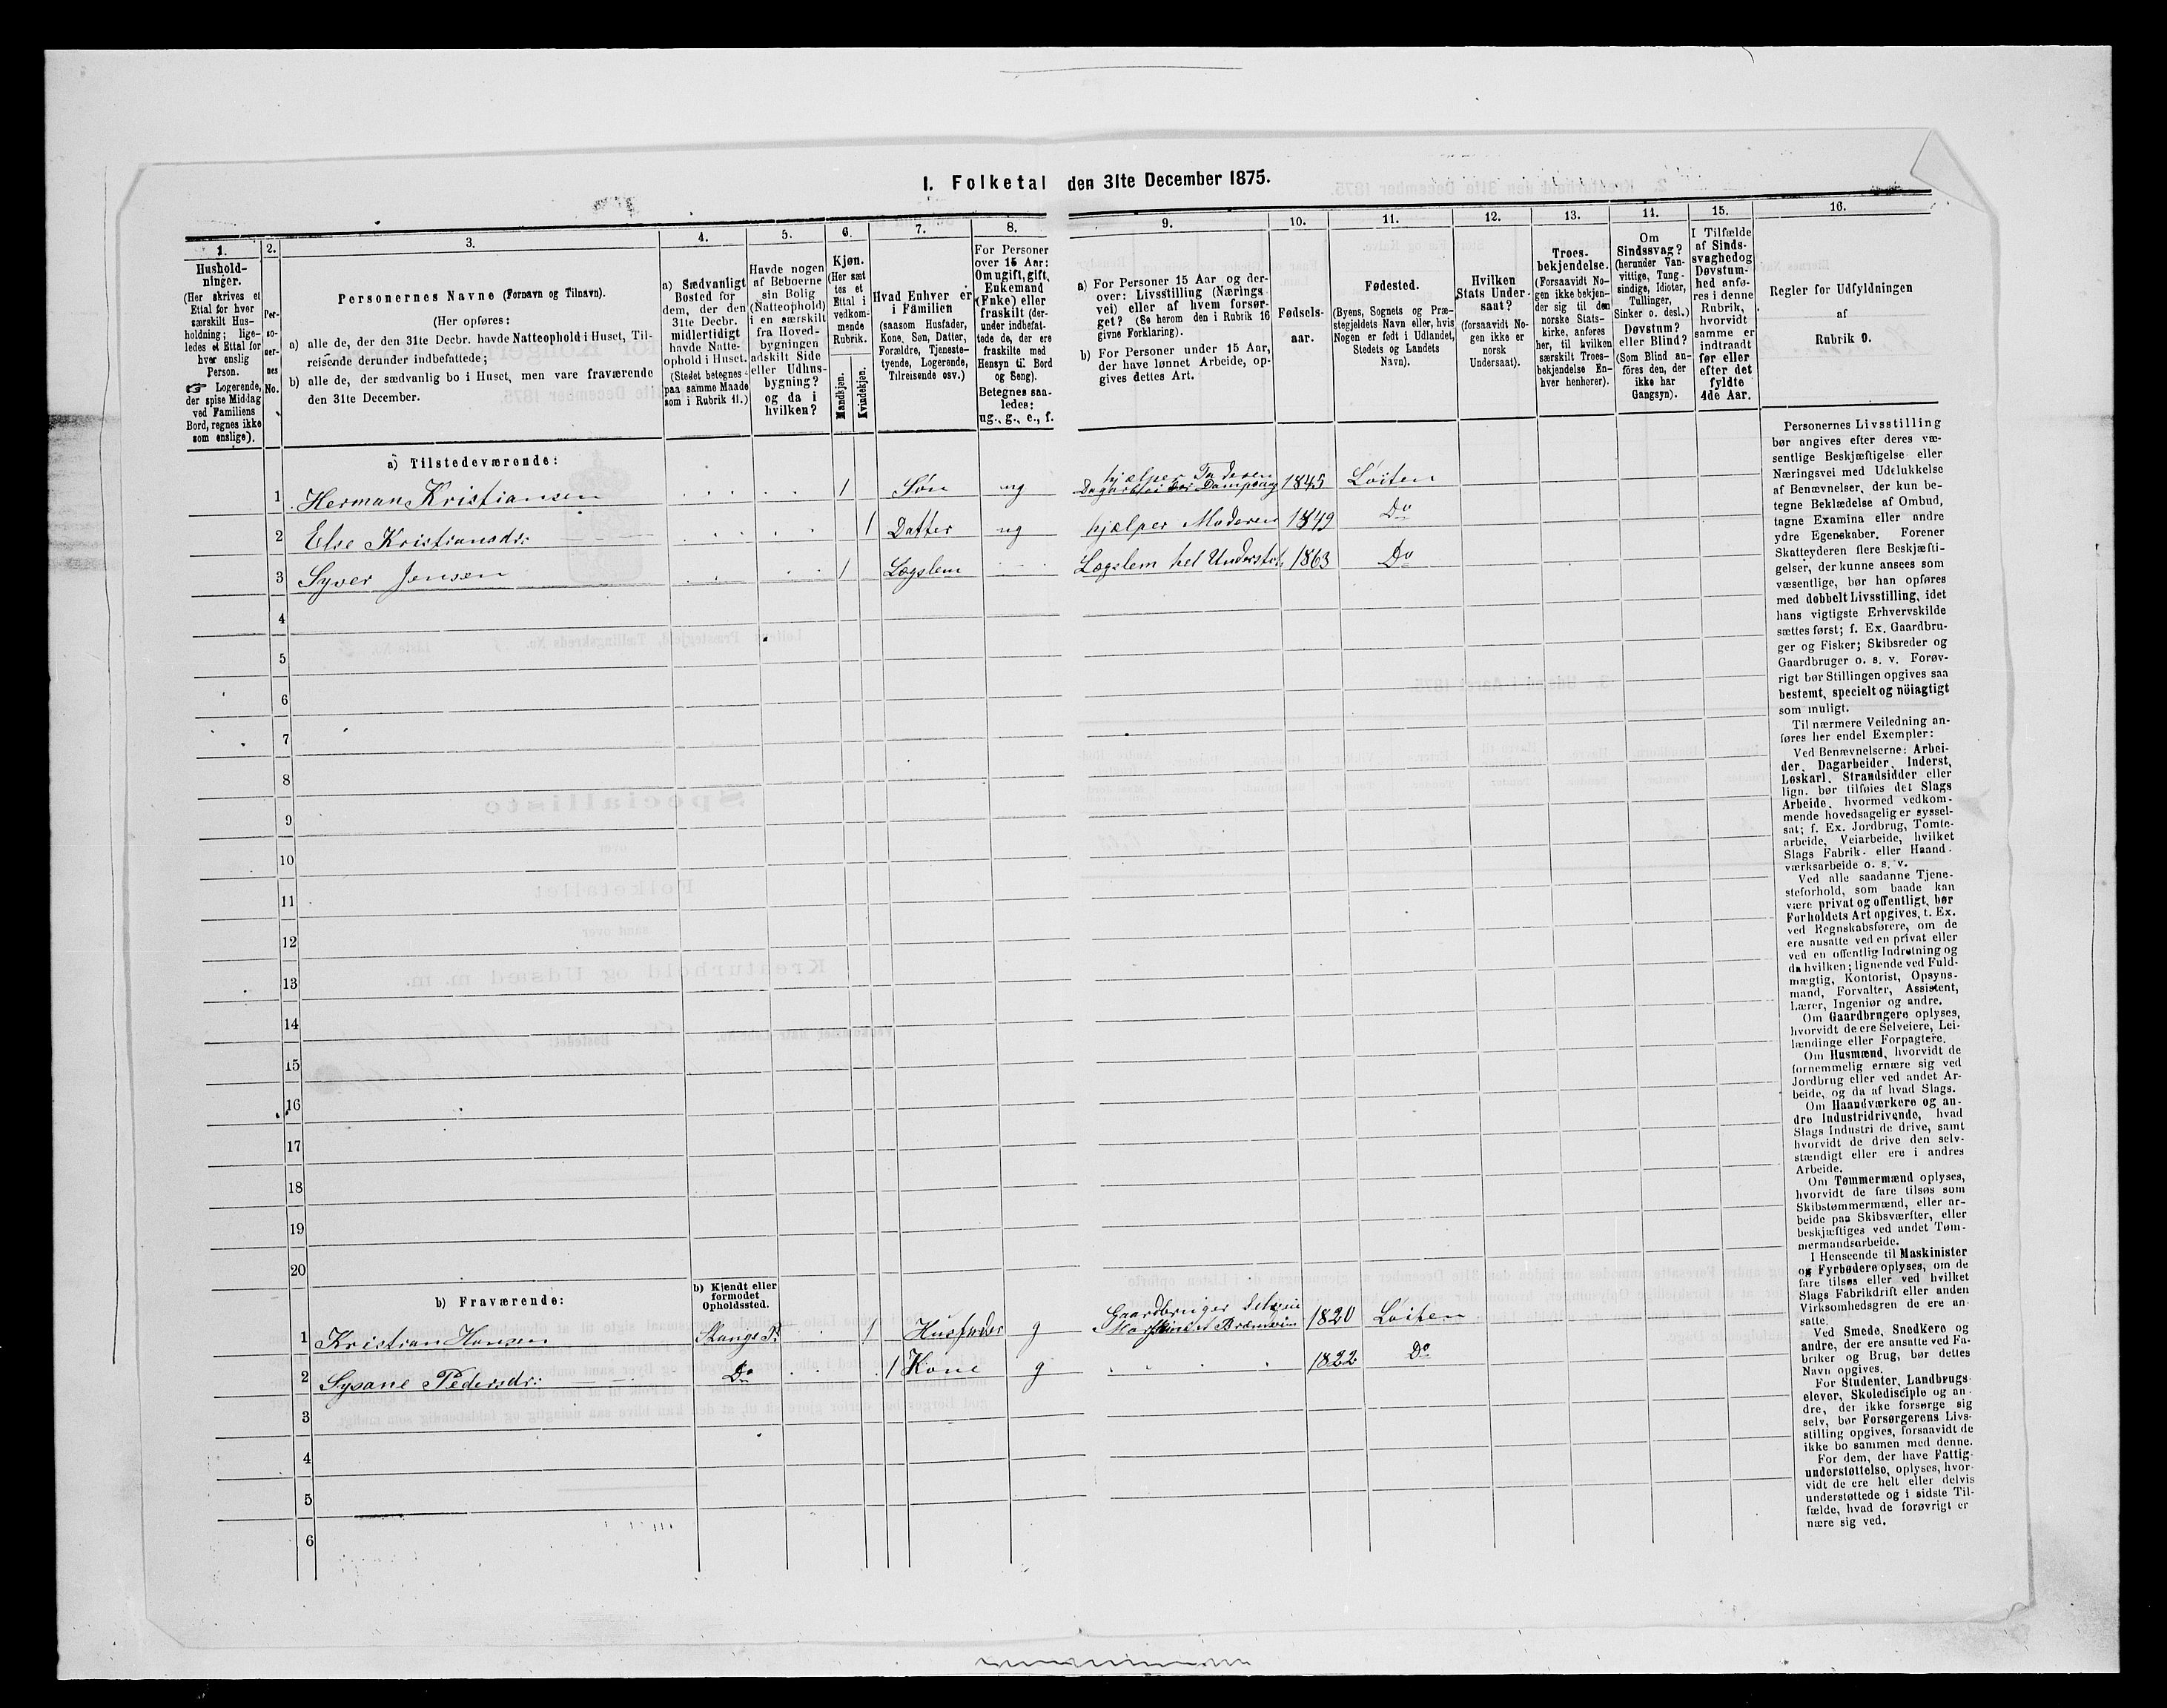 I. Folketal den 31te December 1875.
1. 2. 3. 4. 5. 6. 7. 8. 9. 10. 11. 12. 13. 14. 15. 16.
Hushold-
ninger.
(Her skrives et
Ettal for hver
særskilt Hus-
holdning; lige-
ledes et Ettal for
hver enslig
Person.
☞ Logerende,
der spise Middag
ved Familiens
Bord, regnes ikke
som enslige).
Per-
so-
ner-
nes
No.
Personernes Navne (Fornavn og Tilnavn).
(Her opføres:
a) alle de, der den 31te Decbr. havde Natteophold i Huset, Til-
reisende derunder indbefattede;
b) alle de, der sædvanlig bo i Huset, men vare fraværende
den 31te December.
a) Sædvanligt
Bosted for
dem, der den
31te Decbr.
midlertidigt
havde Natte-
ophold i Huset.
(Stedet betegnes
paa samme Maade
som i Rubrik 11.)
Havde nogen
af Beboerne
sin Bolig
(Natteophold)
i en særskilt
fra Hoved-
bygningen
adskilt Side
eller Udhus-
bygning?
og da i
hvilken?
Kjøn.
(Her sæt
tes et
Ettal i
vedkom-
mende
Rubrik.
Mandkjøn.
Kvindekjøn.
Hvad Enhver er
i Familien
(saasom Husfader,
Kone, Søn, Datter,
Forældre, Tjeneste-
tyende, Logerende,
Tilreisende osv.)
For Personer
over 15 Aar:
Om ugift, gift,
Enkemand
(Enke) eller
fraskilt (der-
under indbefat-
tede de, der ere
fraskilte med
Hensyn til Bord
og Seng).
Betegnes saa-
ledes:
ug., g., e., f.
a) For Personer 15 Aar og der-
over: Livsstilling (Nærings
vei) eller af hvem forsør-
get? (Se herom den i Rubrik 16
givne Forklaring).
b) For Personer under 15 Aar,
der have lønnet Arbeide, op-
gives dettes Art.
Fødsels-
aar.
Fødested.
(Byens, Sognets og Præ-
stegjeldets Navn eller, hvis
Nogen er født i Udlandet,
Stedets og Landets
Navn).
Hvilken
Stats Under-
saat?
(forsaavidt No-
gen ikke er
norsk
Undersaat).
Troes-
bekjendelse.
(Forsaavidt No-
gen ikke bekjen-
der sig til den
norske Stats-
kirke, anføres
her, til hvilken
særskilt Troes-
bekjendelse En-
hver henhører).
Om
Sindssvag?
(herunder Van-
vittige, Tung-
sindige, Idioter,
Tullinger,
Sinker o. desl.)
Døvstum?
eller Blind?
(Som Blind an-
føres den, der
ikke har
Gangsyn).
I Tilfælde
af Sinds-
svaghed og
Døvstum-
hed anfø-
res i denne
Rubrik,
hvorvidt
samme er
indtraadt
før eller
efter det
fyldte
4de Aar.
Regler for Udfyldningen
af
Rubrik 9.
a) Tilstedeværende:
1 Herman Kristiansen 1 Søn ug hjælper Faderen 1845 Löiten
2 Else Kristiansdr: 1 Datter ug hjælper Moderen 1849 Do
3 Syver Jensen 1 Lægslem Lægslem hel Underst. 1863 Do
4
5
6
7
8
9
10
11
12
13
14
15
16
17
18
19
20
b) Fraværende:
b) Kjendt eller
formodet
Opholdssted.
1 Kristian Hansen Stange Pr 1 Husfader g Gaardbruger Selveier 1820 Löiten
2 Sysane Pedersdr: Do 1 Kone g 1822 Do
3
4
5
6
Personernes Livsstilling
bør angives efter deres væ-
sentlige Beskjæftigelse eller
Næringsvei med Udelukkelse
af Benævnelser, der kun be-
tegne Beklædelse af Ombud,
tagne Examina eller andre
ydre Egenskaber. Forener
Skatteyderen flere Beskjæfti-
gelser, der kunne ansees som
væsentlige, bør han opføres
med dobbelt Livsstilling, idet
hans vigtigste Erhvervskilde
sættes først; f. Ex. Gaardbru-
ger og Fisker; Skibsreder og
Gaardbruger o. s. v. Forøv-
rigt bør Stillingen opgives saa
bestemt, specielt og nöiagtigt
som muligt.
Til nærmere Veiledning an-
føres her endel Exempler:
Ved Benævnelserne: Arbei-
der, Dagarbeider, Inderst,
Løskarl, Strandsidder eller
lign. bør tilføies det Slags
Arbeide, hvormed vedkom-
mende hovedsagelig er syssel-
sat; f. Ex. Jordbrug, Tomte-
arbeide, Veiarbeide, hvilket
Slags Fabrik- eller Haand-
værksarbeide o. s. v.
Ved alle saadanne Tjene-
steforhold, som baade kan
være privat og offentligt, bør
Forholdets Art opgives, t. Ex.
ved Regnskabsførere, om de
ere ansatte ved en privat eller
ved en offentlig Indretning og
da hvilken; lignende ved Fuld-
mægtig, Kontorist, Opsyns-
mand, Forvalter, Assistent,
Lærer, Ingeniør og andre.
Om Gaardbrugere oplyses,
hvorvidt de ere Selveiere, Lei-
lændinge eller Forpagtere.
Om Husmænd, hvorvidt de
fornemmelig ernære sig ved
Jordbrug eller ved andet Ar-
beide, og da af hvad Slags.
Om Haandværkere og an-
dre Industridrivende, hvad
Slags Industri de drive, samt
hvorvidt de drive den selv-
stændigt eller ere i andres
Arbeide.
Om Tømmermænd oplyses,
hvorvidt de fare tilsøs som
Skibstømmermænd, eller ar-
beide paa Skibsværfter, eller
beskjæftiges ved andet Tøm-
mermandsarbeide.
I Henseende til Maskinister
og Fyrbødere oplyses, om de
fare tilsøs eller ved hvilket
Slags Fabrikdrift eller anden
Virksomhedsgren de ere an-
satte.
Ved Smede, Snedkere og
andre, der ere ansatte ved Fa-
briker og Brug, bør dettes
Navn opgives.
For Studenter, Landbrugs-
elever, Skoledisciple og an-
dre, der ikke forsørge sig
selv, bør Forsørgerens Livs-
stilling opgives, forsaavidt de
ikke bo sammen med denne.
For dem, der have Fattig-
understøttelse, oplyses, hvor-
vidt de ere helt eller delvis
understøttede og i sidste Til-
fælde, hvad de forøvrigt er
nære sig ved.